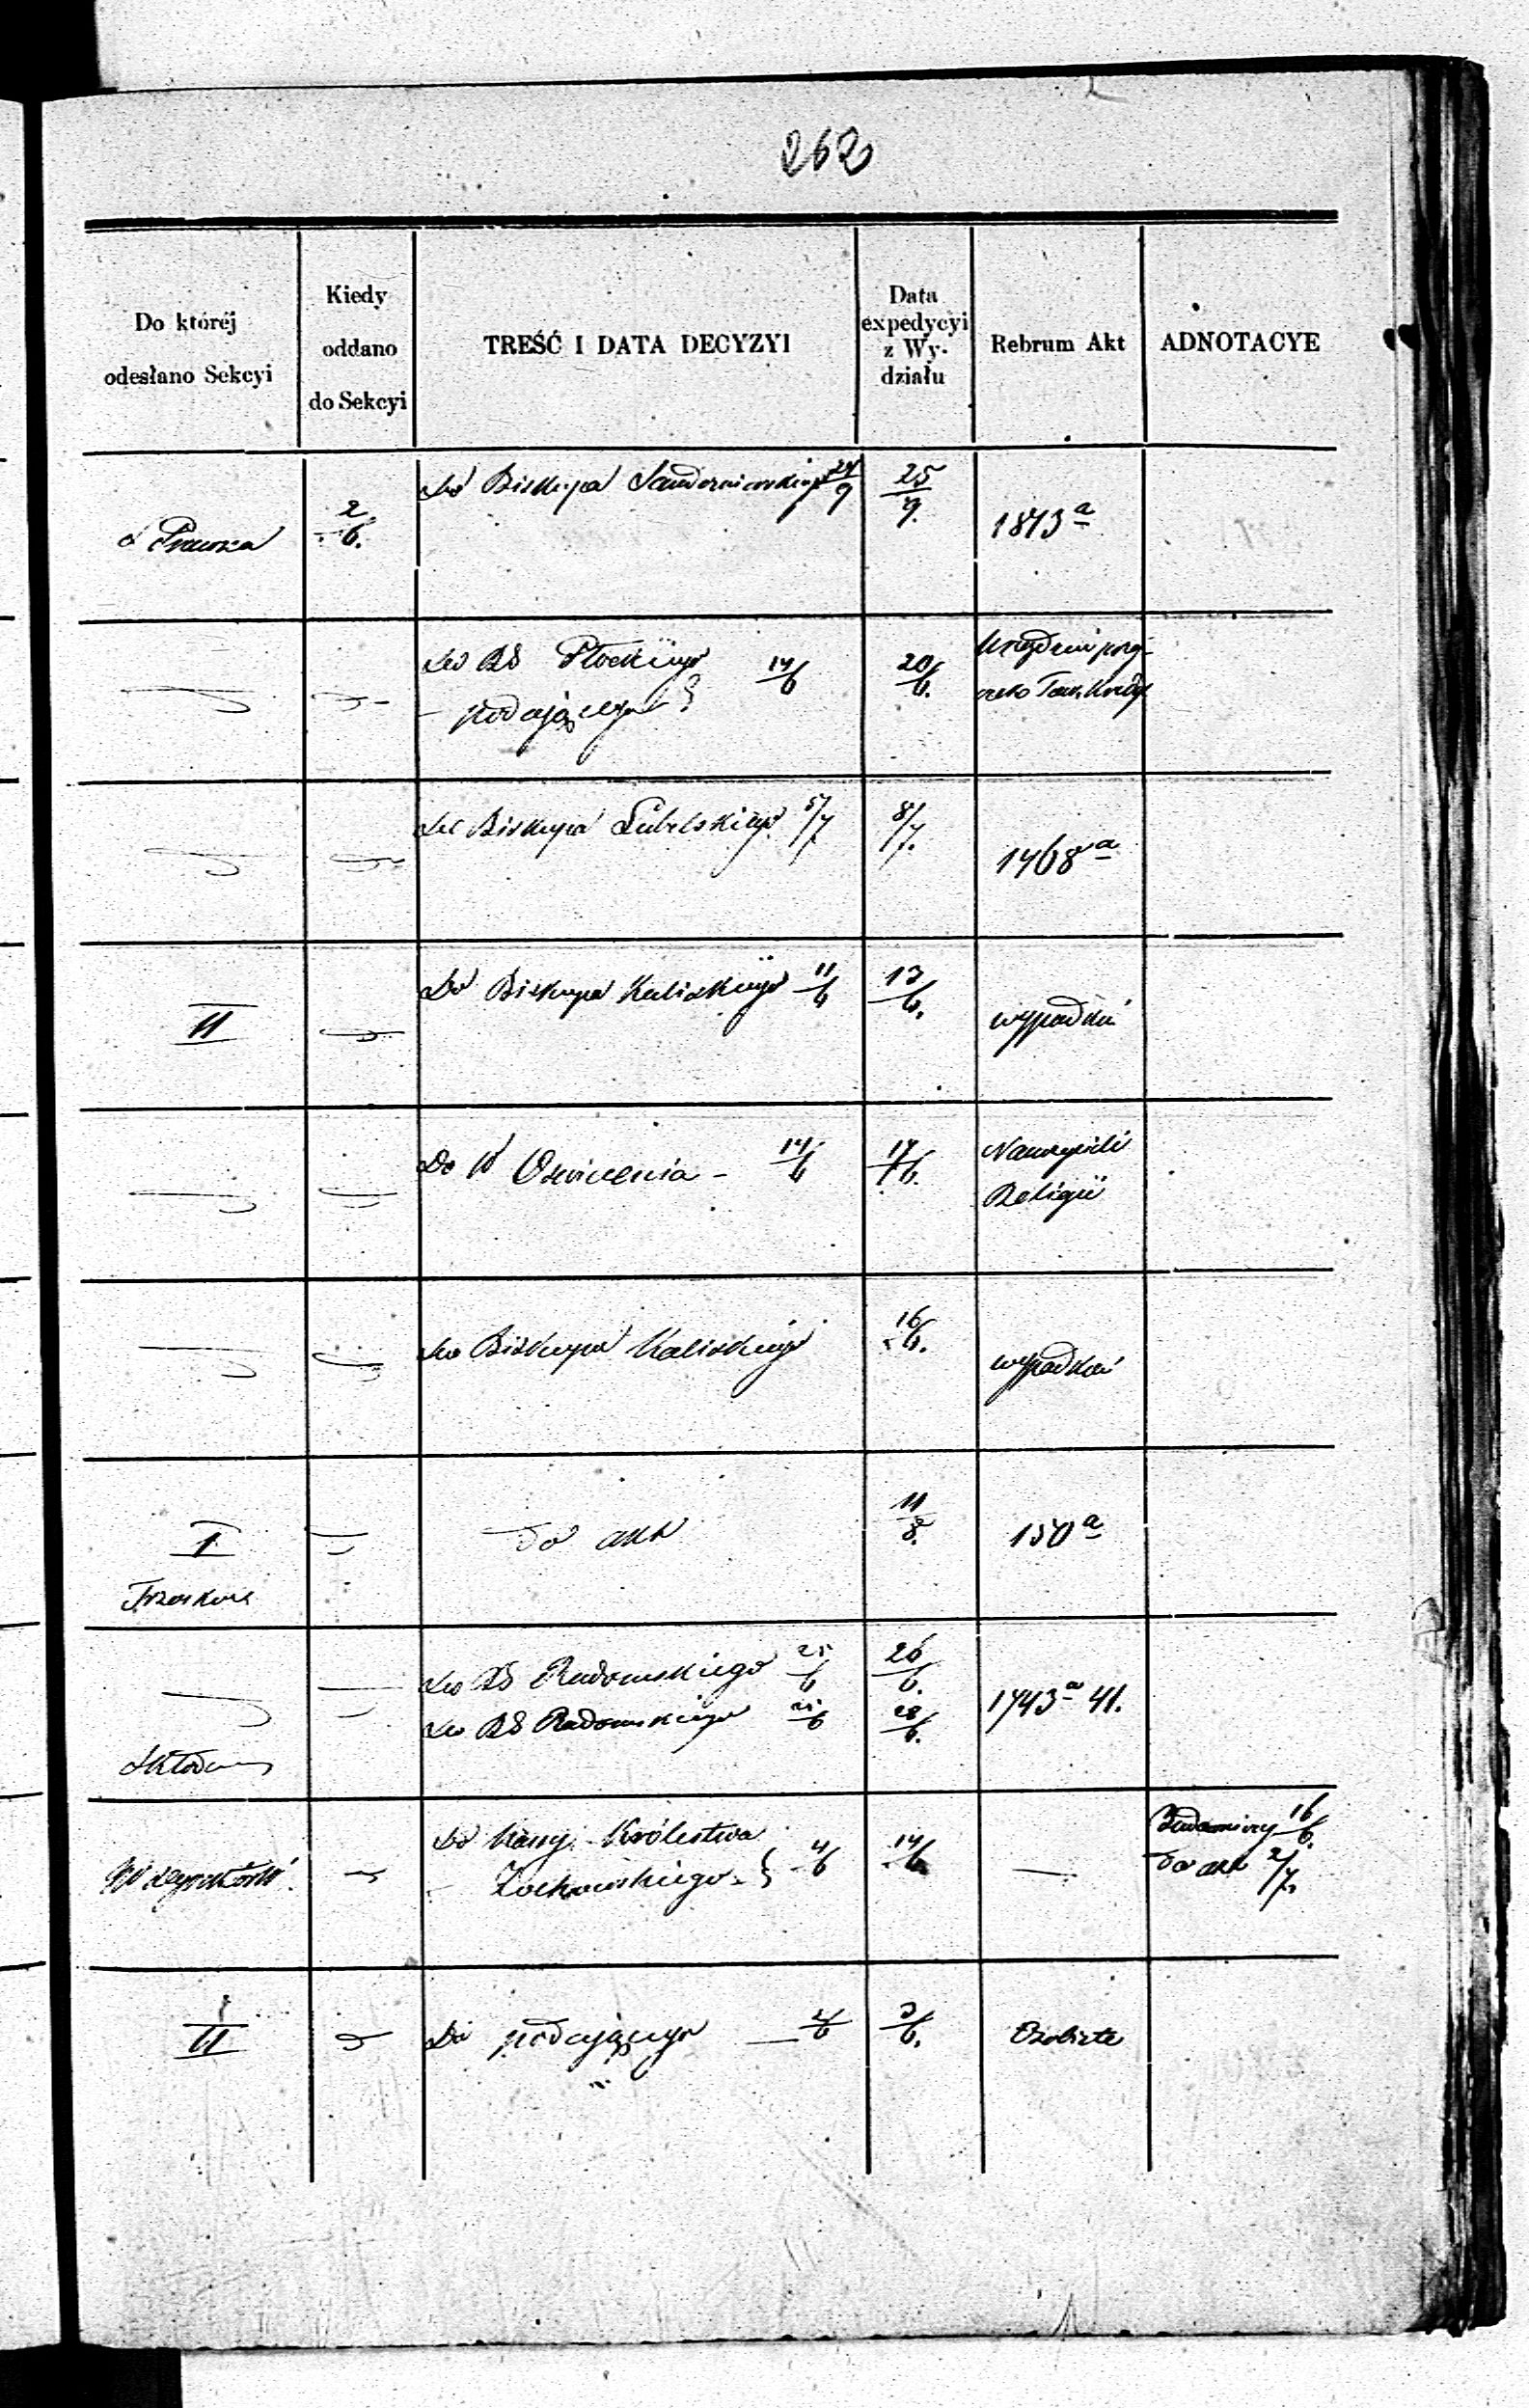 262
Do któréj
odesłano Sekcyi
Kiedy
oddano
do Sekcyi
TREŚĆ I DATA DECYZYI
Data
expedycyi
z Wy-
działu
Rebrum Akt
ADNOTACYE
2/6.
Do Biskupa Sandomierskiego 24/9
25/9.
1873 a
Do RG Płockiego 14/6
– podającego
20/6.
Do Biskupa Lubelskiego 5/7
8/7.
1468 a
II
Do Biskupa Kaliskiego 11/6
13/6.
wypadki
Do W Oświecenia – 14/6
17/6.
Nauczyciele
Religii
Do Biskupa Kaliskiego
16/6.
wypadki
I
do akt
11/8.
150 a
Do RG Radomskiego 25/6
26/6.
Do RG Radomskiego 25/6
28/6.
1743 a 41.
Do Kassy Królestwa
– Żochowskiego 4/6
14/6
—
16/6.
do akt 2/7.
II
Do podającego — 2/6
3/6.
Osobiste